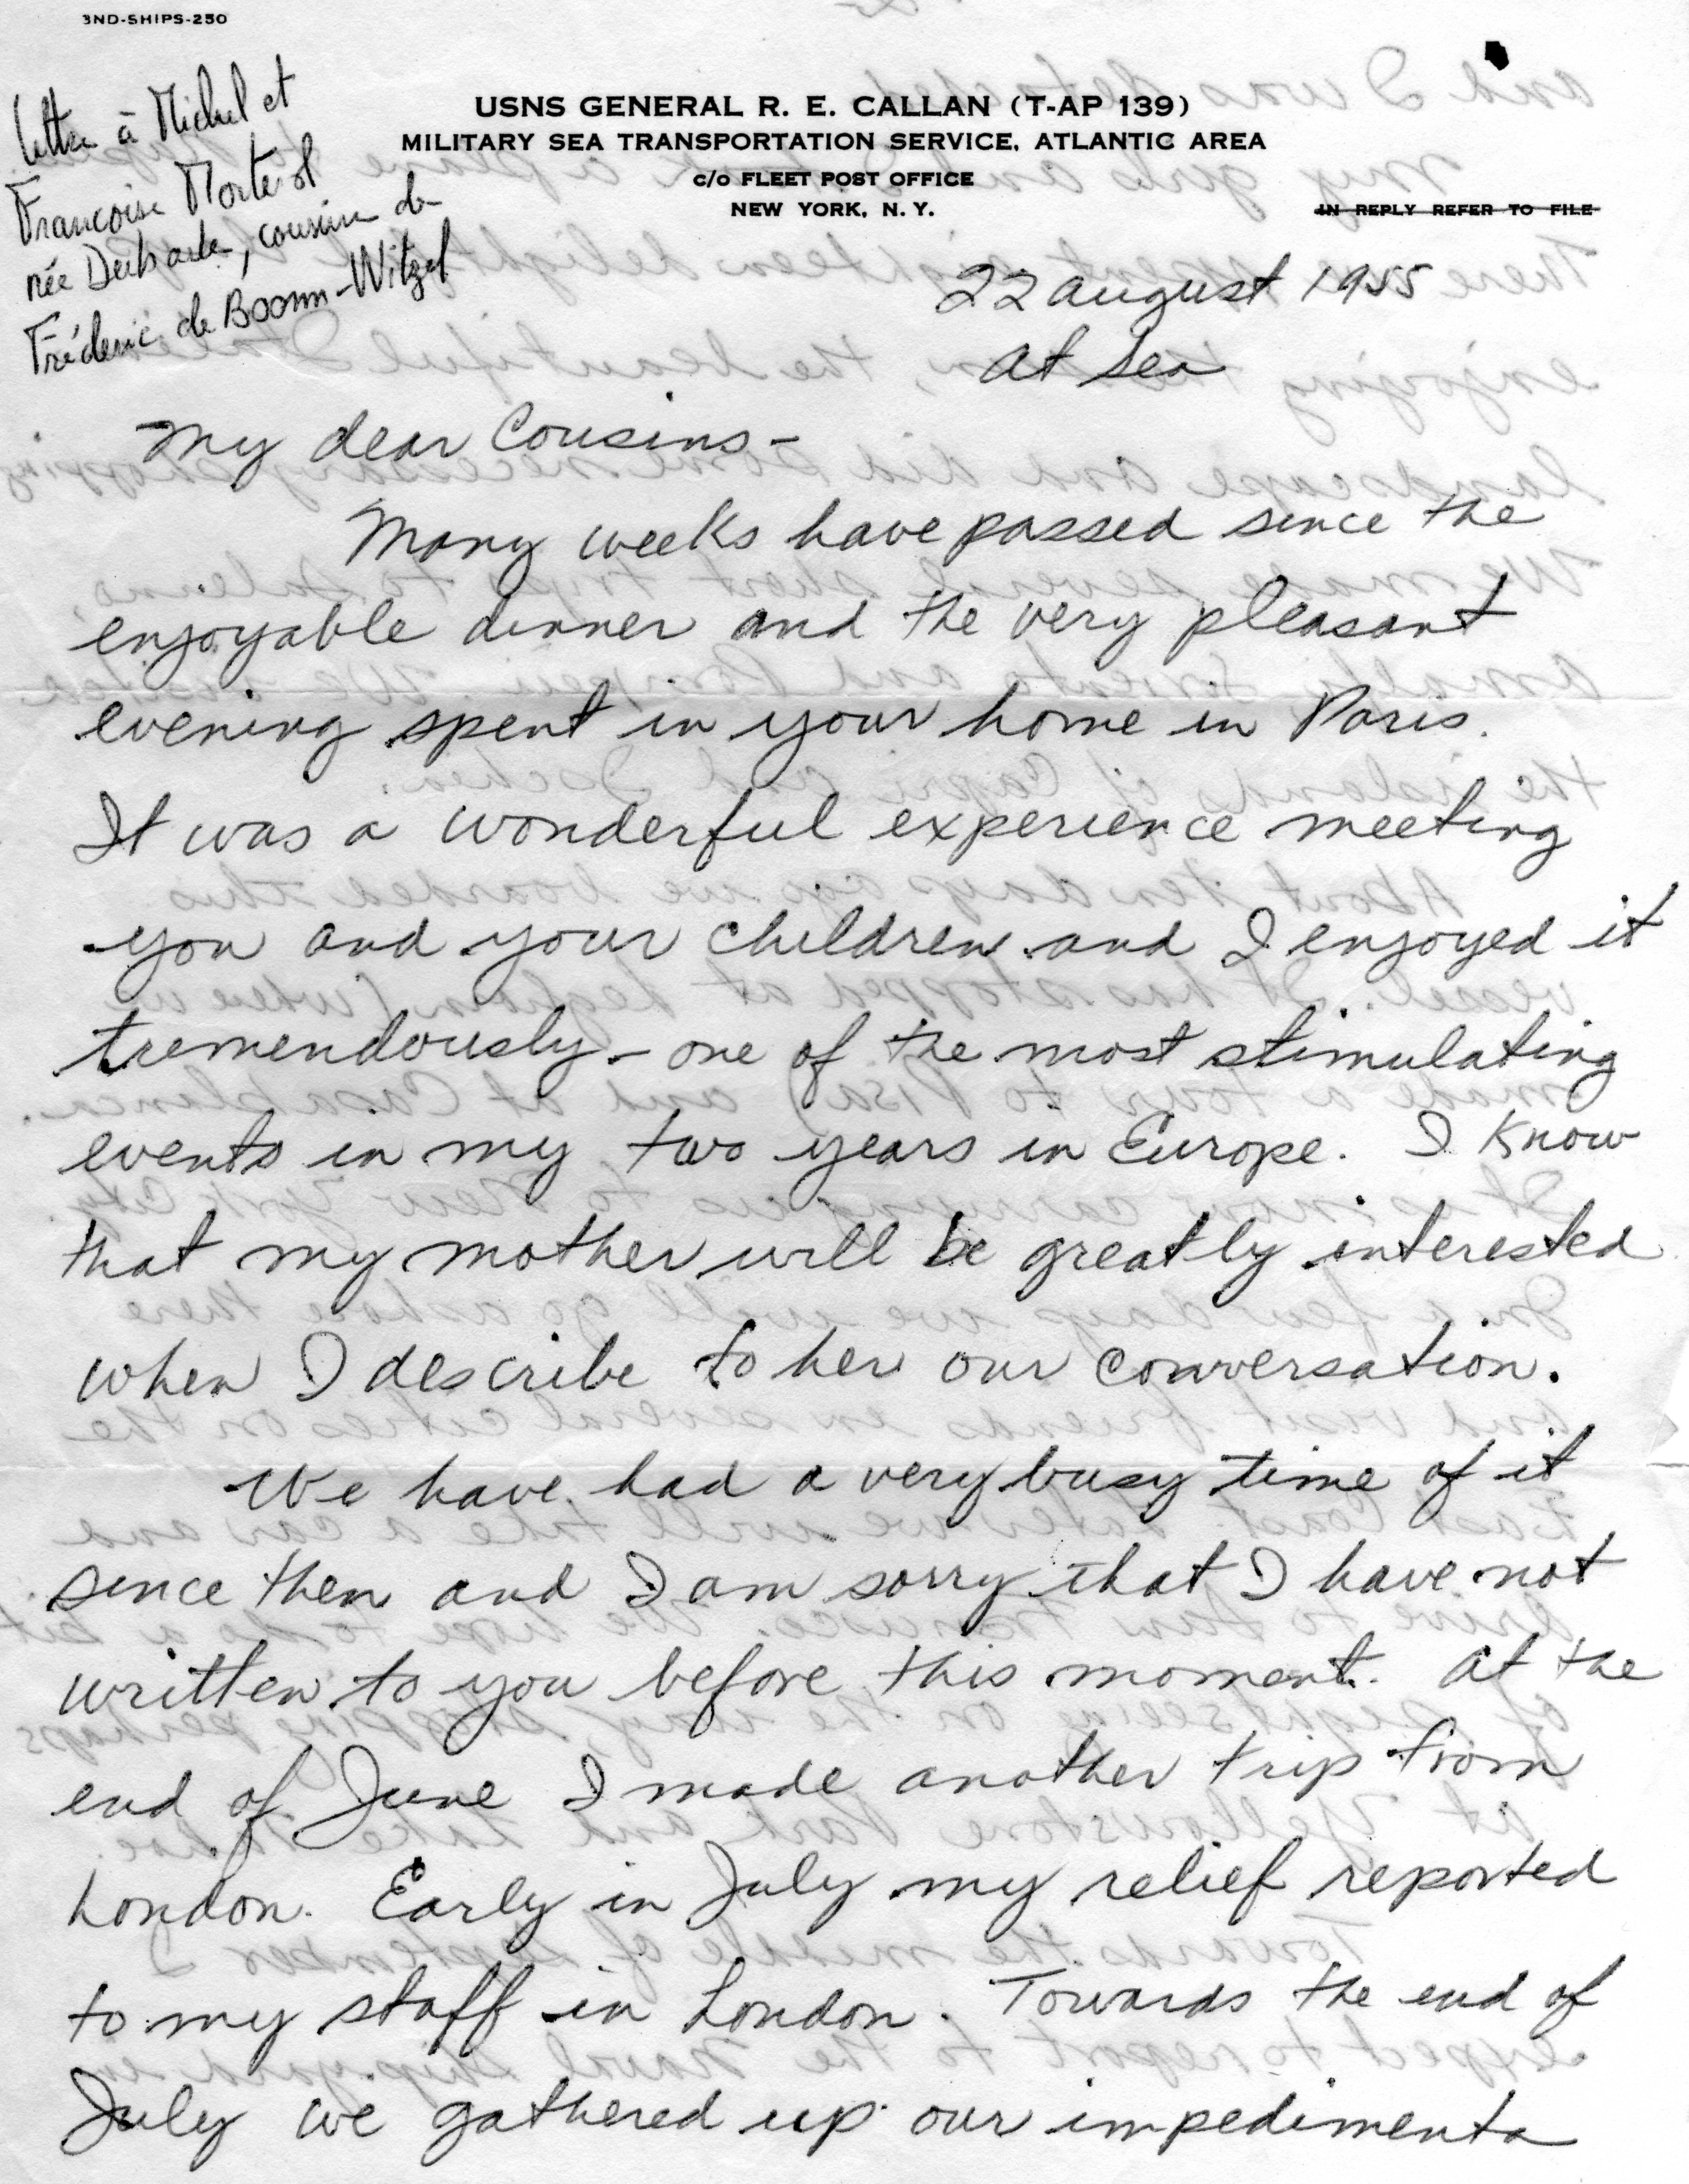 3ND-SHIPS-250
USNS GENERAL R. E. CALLAN (T-AP 139)
MILITARY SEA TRANSPORTATION SERVICE, ATLANTIC AREA
c/o FLEET POST OFFICE
NEW YORK, N. Y.
IN REPLY REFER TO FILE
lettre à Michel et
Françoise Morterol
née Deibarbe, cousine de
Fréderic de Boom-Witzel
22 august 1955
at sea
My dear Cousins-
Many weeks have passed since the
enjoyable dinner and the very pleasant
evening spent in your home in Paris.
It was a wonderful experience meeting
you and your children and I enjoyed it
tremendously - one of the most stimulating
events in my two years in Europe. I know
that my mother will be greatly interested
when I describe to her our conversation.
We have had a very busy time of it
since then and I am sorry that I have not
written to you before this moment. At the
end of June I made another trip from
London. Early in July my relief reported
to my staff in London. Towards the end of
July we gathered up our impedimenta